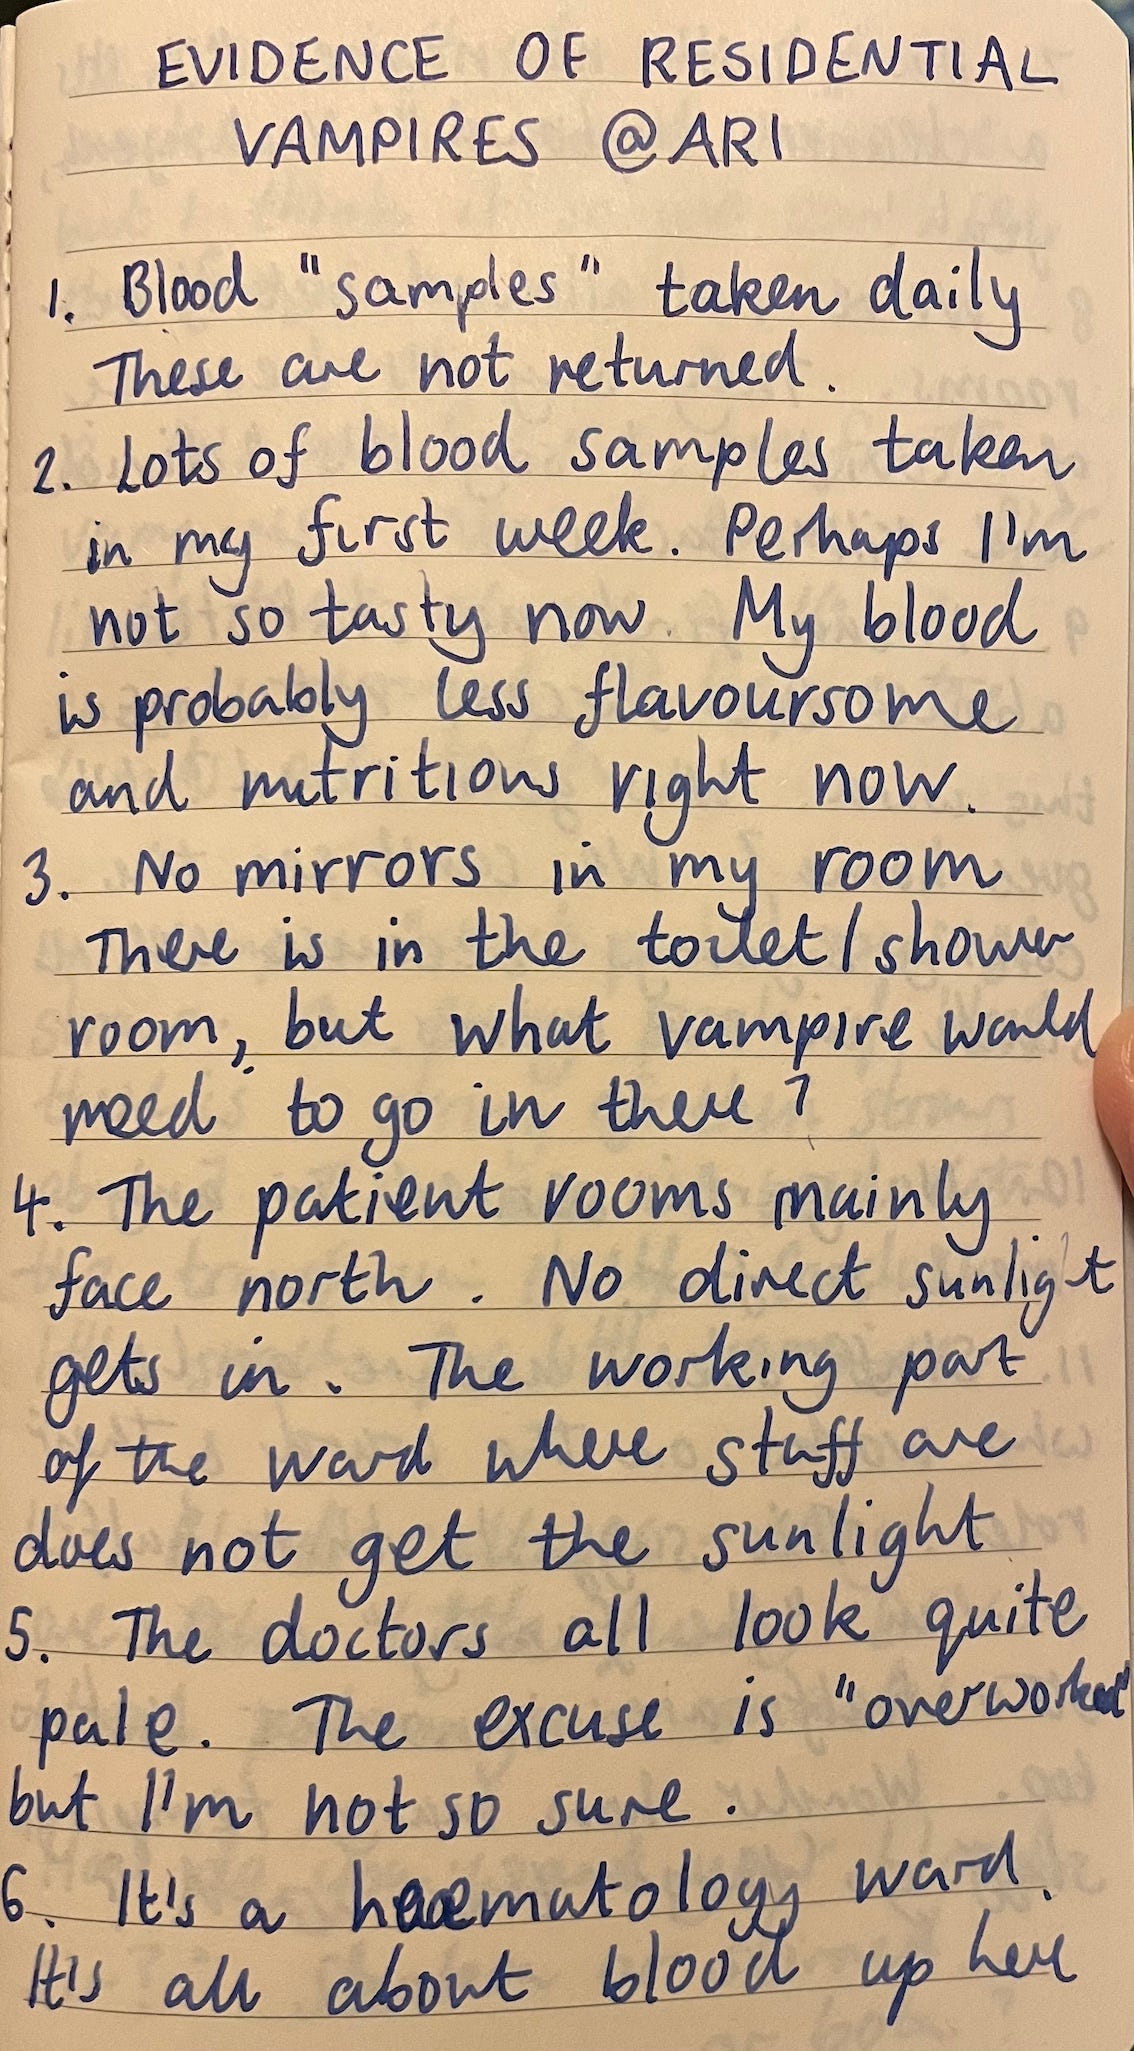 EVIDENCE OF RESIDENTIAL
VAMPIRES @ARI
1. Blood "samples" taken daily
These are not returned.
2. Lots of blood samples taken
in my first week. Perhaps I'm
not so tasty now. My blood
is probably less flavoursome
and nutritious right now.
3. No mirrors in my room
There is in the toilet/shower
room, but what vampire would
need to go in there?
4. The patient rooms mainly
face north. No direct sunlight
gets in. The working part
of the ward where staff are
does not get the sunlight
5. The doctors all look quite
pale. The excuse is "overworked"
but I'm not so sure.
6. It's a haematology ward.
It's all about blood up here